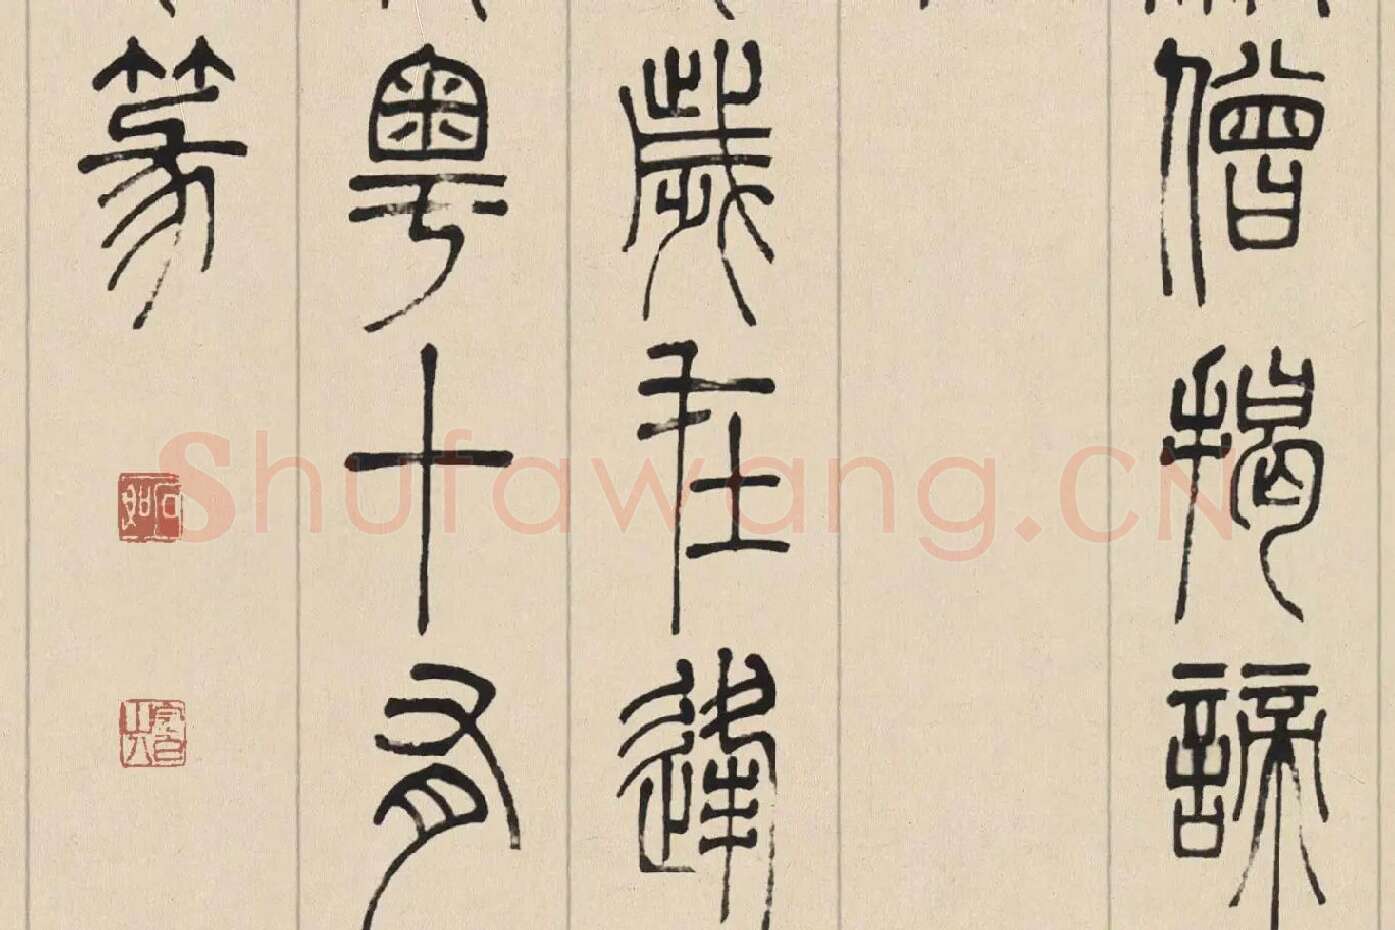 僧揭諦
歲在逢
粵十有
篆
Shufawang.CN